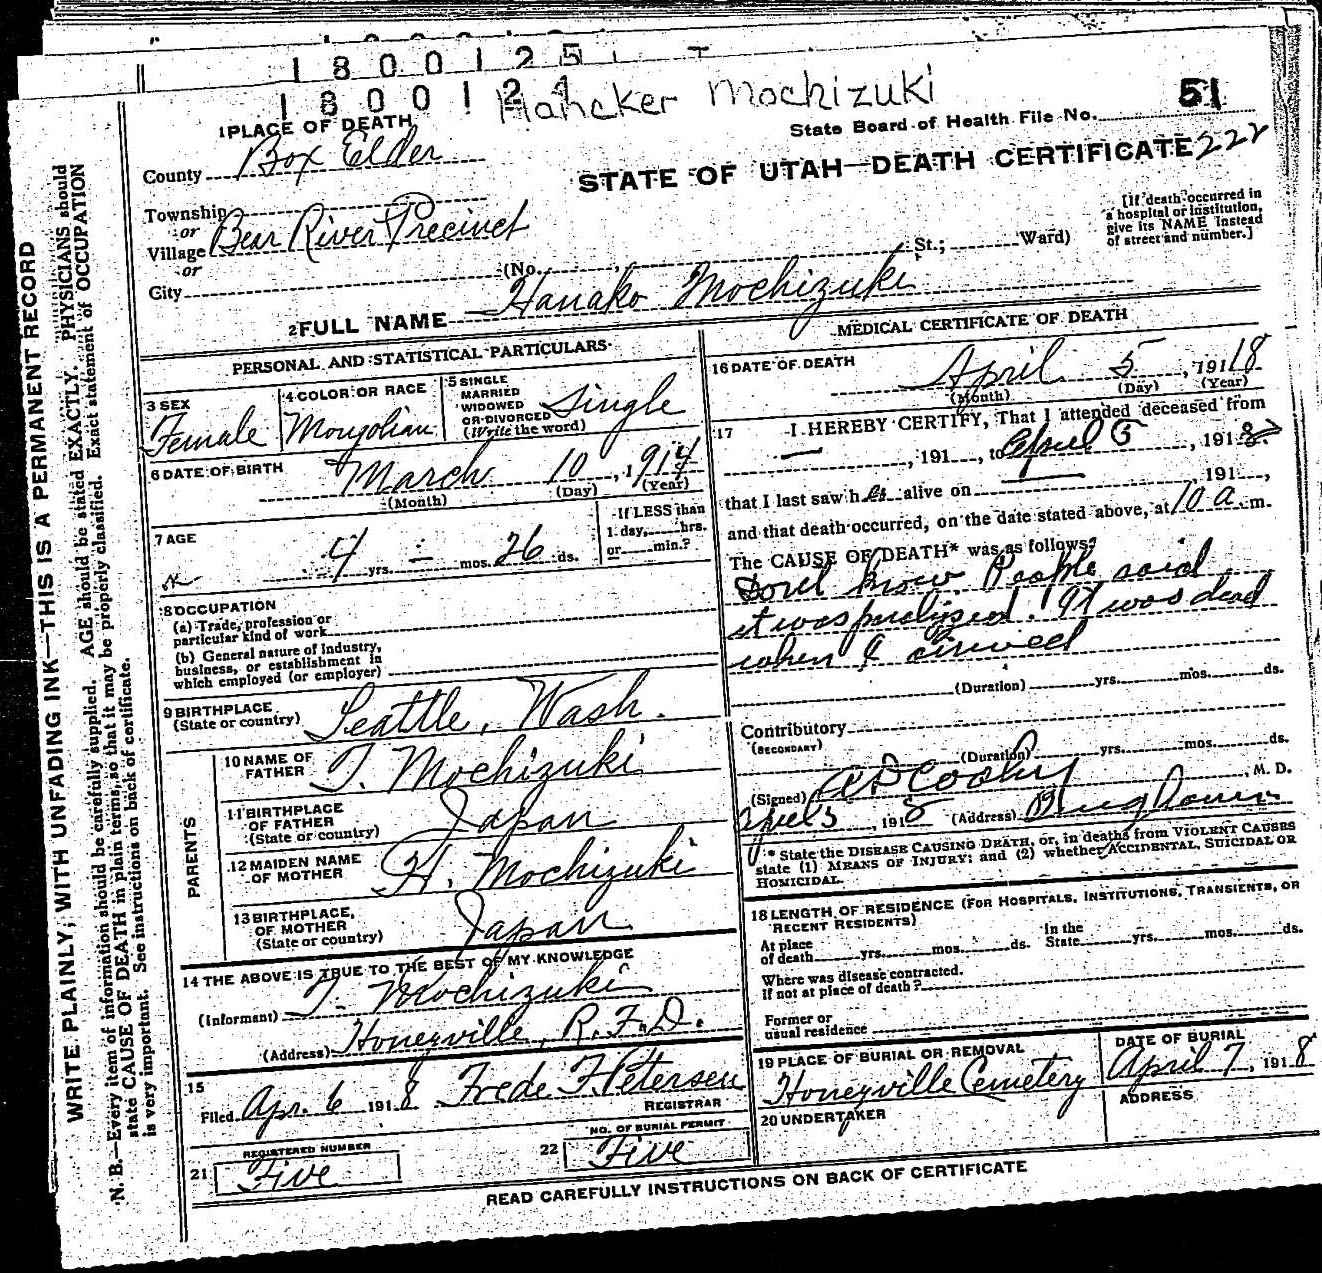 1800125
1800124
Hancker Mochizuki
51
State Board of Health File No.
222
STATE OF UTAH—DEATH CERTIFICATE
1 PLACE OF DEATH
County Box Elder
Township
or
Village Bear River Precinct
or
City (No. St.; Ward)
[If death occurred in
a hospital or institution,
give its NAME instead
of street and number.]
2 FULL NAME Hanako Mochizuki
PERSONAL AND STATISTICAL PARTICULARS
3 SEX
Female
4 COLOR OR RACE
Mongolian
5 SINGLE
MARRIED
WIDOWED
OR DIVORCED
(Write the word)
Single
6 DATE OF BIRTH
March 10, 1914
(Month) (Day) (Year)
7 AGE
4 yrs. — mos. 26 ds.
If LESS than
1 day, hrs.
or min.?
8 OCCUPATION
(a) Trade, profession or
particular kind of work
(b) General nature of Industry,
business, or establishment in
which employed (or employer)
9 BIRTHPLACE
(State or country) Seattle, Wash.
PARENTS
10 NAME OF
FATHER T. Mochizuki
11 BIRTHPLACE
OF FATHER
(State or country) Japan
12 MAIDEN NAME
OF MOTHER H. Mochizuki
13 BIRTHPLACE,
OF MOTHER
(State or country) Japan
14 THE ABOVE IS TRUE TO THE BEST OF MY KNOWLEDGE
(Informant) T. Mochizuki
(Address) Honeyville, R.F.D.
15
Filed Apr. 6 1918 Frede F. Petersen
REGISTRAR
21 REGISTERED NUMBER
Five
22 NO. OF BURIAL PERMIT
Five
MEDICAL CERTIFICATE OF DEATH
16 DATE OF DEATH
April 5, 19118
(Month) (Day) (Year)
17 I HEREBY CERTIFY, That I attended deceased from
—, 191 , to April 5, 1918
that I last saw h er alive on — 191 ,
and that death occurred, on the date stated above, at 10 a. m.
The CAUSE OF DEATH* was as follows:
Dont know People said
it was paralized. It was dead
when I arrived
(Duration) yrs. mos. ds.
Contributory
(SECONDARY)
(Duration) yrs. mos. ds.
(Signed) A D Cooley, M. D.
April 5, 1918 (Address)
* State the DISEASE CAUSING DEATH, or, in deaths from VIOLENT CAUSES
state (1) MEANS OF INJURY; and (2) whether ACCIDENTAL, SUICIDAL OR
HOMICIDAL.
18 LENGTH OF RESIDENCE (FOR HOSPITALS, INSTITUTIONS, TRANSIENTS, OR
RECENT RESIDENTS)
At place
of death yrs. mos. ds.
In the
State yrs. mos. ds.
Where was disease contracted.
If not at place of death?
Former or
usual residence
19 PLACE OF BURIAL OR REMOVAL
Honeyville Cemetery
DATE OF BURIAL
April 7, 1918
20 UNDERTAKER
ADDRESS
READ CAREFULLY INSTRUCTIONS ON BACK OF CERTIFICATE
WRITE PLAINLY, WITH UNFADING INK—THIS IS A PERMANENT RECORD
N. B.—Every item of information should be carefully supplied. AGE should be stated EXACTLY. PHYSICIANS should
state CAUSE OF DEATH in plain terms, so that it may be properly classified. Exact statement of OCCUPATION
is very important. See instructions on back of certificate.